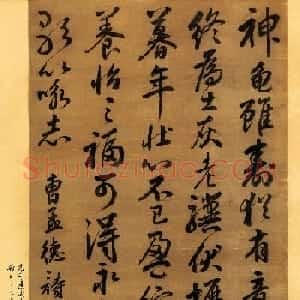 神龜雖壽猶有竟
終爲土灰老驥伏櫪
暮年壯心不已盈縮
養怡之福可得永
歌以咏志 曹孟德詩